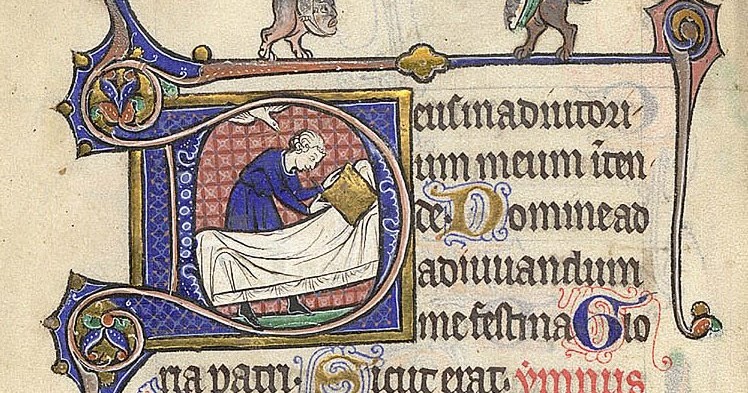 Deus in adiutori
um meum īten
de Domine ad
adiuuandum
me festina Glo
ria patri· Sicut erat· ẏmnus